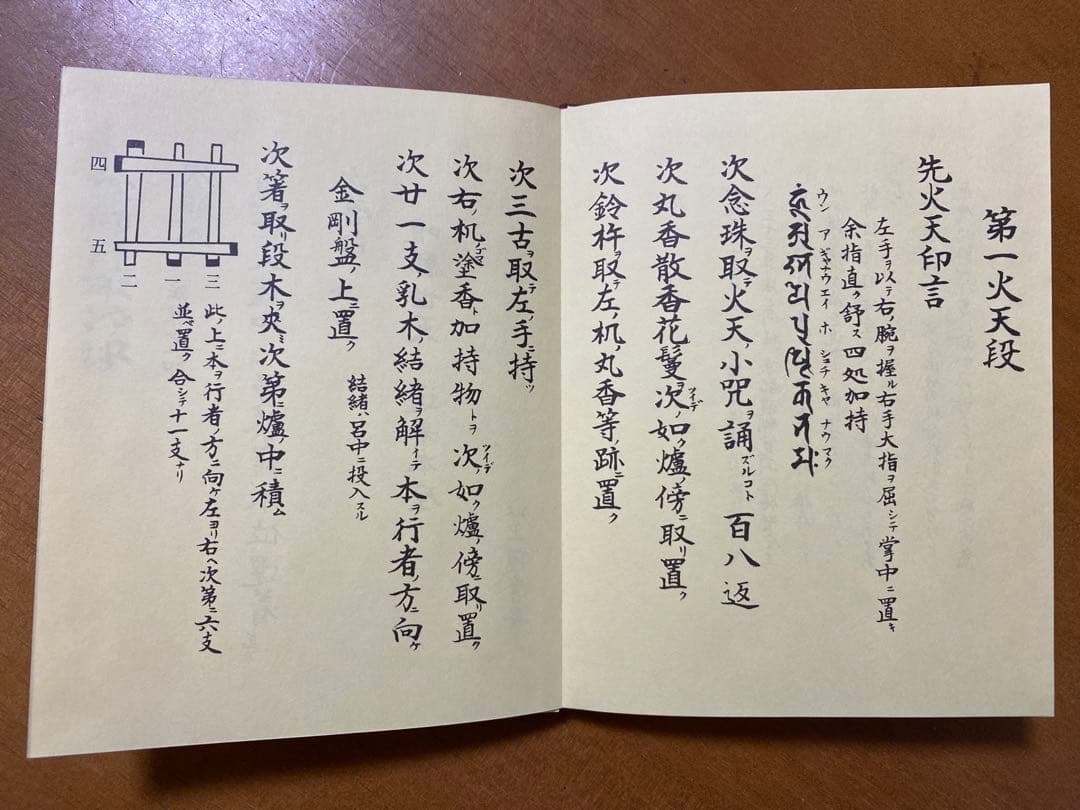 第一火天段
先火天印言
左手ヲ以テ右ノ腕ヲ握ル右手大指ヲ屈シテ掌中ニ置キ
余指直ク舒ス 四処加持
ウン ア ギャナウエイ ホ シュチ キャ ナウマク
次念珠ヲ取テ火天ノ小咒ヲ誦ズルコト百八返
次丸香散香花鬘ヲ次イデノ如ク爐ノ傍ニ取リ置ク
次鈴杵取テ左ノ机ノ丸香等ノ跡ニ置ク
次三古ヲ取テ左ノ手ニ持ツ
次右ノ机ノ塗香ト加持物トヲ次ツイデ如ク爐ノ傍ニ取リ置ク
次廿一支乳木ノ結緒ヲ解イテ本ヲ行者ノ方ニ向ケ
金剛盤ノ上ニ置ク 結緒ハ呂中ニ投入スル
次箸ヲ取リ段木ヲ夾ミ次第ニ爐ノ中ニ積ム
此ノ上ニ本ヲ行者ノ方ニ向ケ左ヨリ右ヘ次第ニ六支
並ベ置ク 合シテ十一支ナリ
四
五
二 一 三